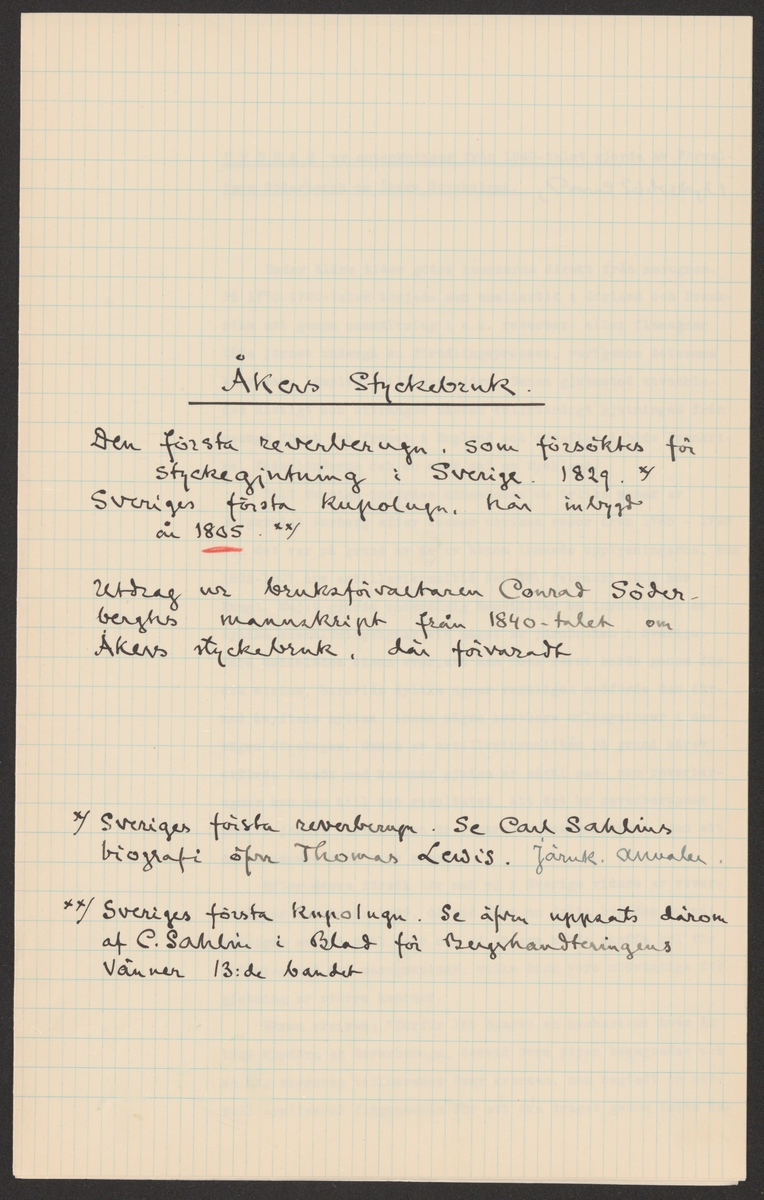 Åkers Styckebruk.
Den första reverberugn, som försöktes för
styckegjutning i Sverige. 1829. x/
Sveriges första kupolugn, här inbygd
år 1805. xx/
Utdrag ur bruksförvaltaren Conrad Söder-
berghs mannskript från 1840-talet om
Åkers styckebruk, där förvaradt
x/ Sveriges första reverberugn. Se Carl Sahlins
biografi öfver Thomas Lewis. Järnk. Annaler.
xx/ Sveriges första kupolugn. Se äfven uppsats därom
af C. Sahlin i Blad för Bergshandteringens
Vänner 13:de bandet